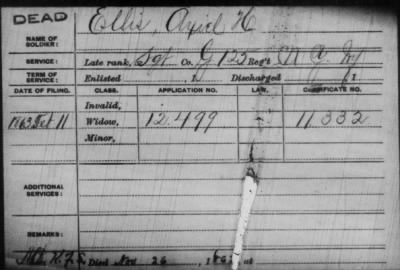 DEAD
NAME OF SOLDIER: Ellis, Axiel H
SERVICE: Late rank, Sgt Co. G 125 Reg't N.Y.
TERM OF SERVICE: Enlisted , 1 Discharged , 1
DATE OF FILING. CLASS. APPLICATION NO. LAW. CERTIFICATE NO.
Invalid,
1863 Feb 11 Widow, 12.499 11332
Minor,
ADDITIONAL SERVICES:
REMARKS:
Died Nov 26, 186 at